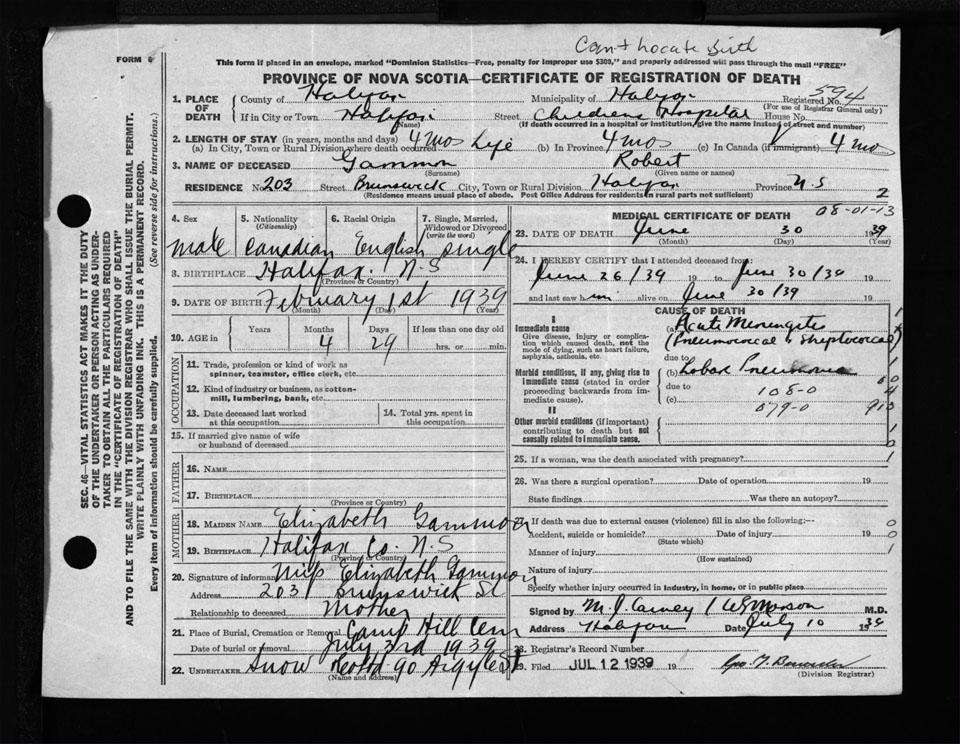 Can't Locate Birth
FORM 6
This form if placed in an envelope, marked "Dominion Statistics—Free, penalty for improper use $300," and properly addressed will pass through the mail "FREE"
PROVINCE OF NOVA SCOTIA—CERTIFICATE OF REGISTRATION OF DEATH
1. PLACE OF DEATH
County of Halifax Municipality of Halifax Registered No. 594
(For use of Registrar General only)
If in City or Town Halifax Street Childrens Hospital House No.
(Name) (If death occurred in a hospital or institution, give the name instead of street and number)
2. LENGTH OF STAY (in years, months and days)
(a) In City, Town or Rural Division where death occurred 4 mos Life (b) In Province 4 mos (c) In Canada (if immigrant) 4 mo
3. NAME OF DECEASED Gammon Robert
(Surname) (Given name or names)
RESIDENCE No. 203 Street Brunswick City, Town or Rural Division Halifax Province N.S
(Residence means usual place of abode. Post Office Address for residents in rural parts not sufficient) 2
4. Sex
male
5. Nationality
(Citizenship)
Canadian
6. Racial Origin
English
7. Single, Married, Widowed or Divorced
(write the word)
single
8. BIRTHPLACE Halifax. N.S
(Province or Country)
9. DATE OF BIRTH February 1st 1939
(Month) (Day) (Year)
10. AGE in
Years Months Days If less than one day old
4 29 hrs. or min.
OCCUPATION
11. Trade, profession or kind of work as
spinner, teamster, office clerk, etc.
12. Kind of industry or business, as cotton-
mill, lumbering, bank, etc.
13. Date deceased last worked
at this occupation
14. Total yrs. spent in
this occupation
15. If married give name of wife
or husband of deceased
FATHER
16. NAME
17. BIRTHPLACE
(Province or Country)
MOTHER
18. MAIDEN NAME Elizabeth Gammon
19. BIRTHPLACE Halifax Co. N.S
(Province or Country)
20. Signature of informant Miss Elizabeth Gammon
Address 203 Brunswick St
Relationship to deceased Mother
21. Place of Burial, Cremation or Removal Camp Hill Cem
Date of burial or removal July 3rd 1939
22. UNDERTAKER Snow 90 Argyle St
(Name and address)
MEDICAL CERTIFICATE OF DEATH
08-01-13
23. DATE OF DEATH June 30 1939
(Month) (Day) (Year)
24. I HEREBY CERTIFY that I attended deceased from
June 26/39 to June 30/39 19
and last saw him alive on June 30/39 19
CAUSE OF DEATH
I
Immediate cause
Give disease, injury or complication which caused death, not the mode of dying, such as heart failure, asphyxia, asthenia, etc.
(a) Acute Meningitis
(Pneumococcal & Streptococcal)
due to
Morbid conditions, if any, giving rise to immediate cause (stated in order proceeding backwards from immediate cause).
(b) Lobar Pneumonia
due to 108-0
(c)
079-0
II
Other morbid conditions (if important) contributing to death but not causally related to immediate cause.
25. If a woman, was the death associated with pregnancy?
26. Was there a surgical operation? Date of operation 19
State findings Was there an autopsy?
27. If death was due to external causes (violence) fill in also the following:—
Accident, suicide or homicide? Date of injury 19
(State which)
Manner of injury
(How sustained)
Nature of injury
Specify whether injury occurred in industry, in home, or in public place
Signed by M. J. Carney / M.D.
Address Halifax Date July 10 1939
28. Registrar's Record Number
29. Filed JUL 12 1939 19
(Division Registrar)
SEC. 46—VITAL STATISTICS ACT MAKES IT THE DUTY
OF THE UNDERTAKER OR PERSON ACTING AS UNDER-
TAKER TO OBTAIN ALL THE PARTICULARS REQUIRED
IN THE "CERTIFICATE OF REGISTRATION OF DEATH"
AND TO FILE THE SAME WITH THE DIVISION REGISTRAR WHO SHALL ISSUE THE BURIAL PERMIT.
WRITE PLAINLY WITH UNFADING INK. THIS IS A PERMANENT RECORD.
Every item of information should be carefully supplied. (See reverse side for instructions.)